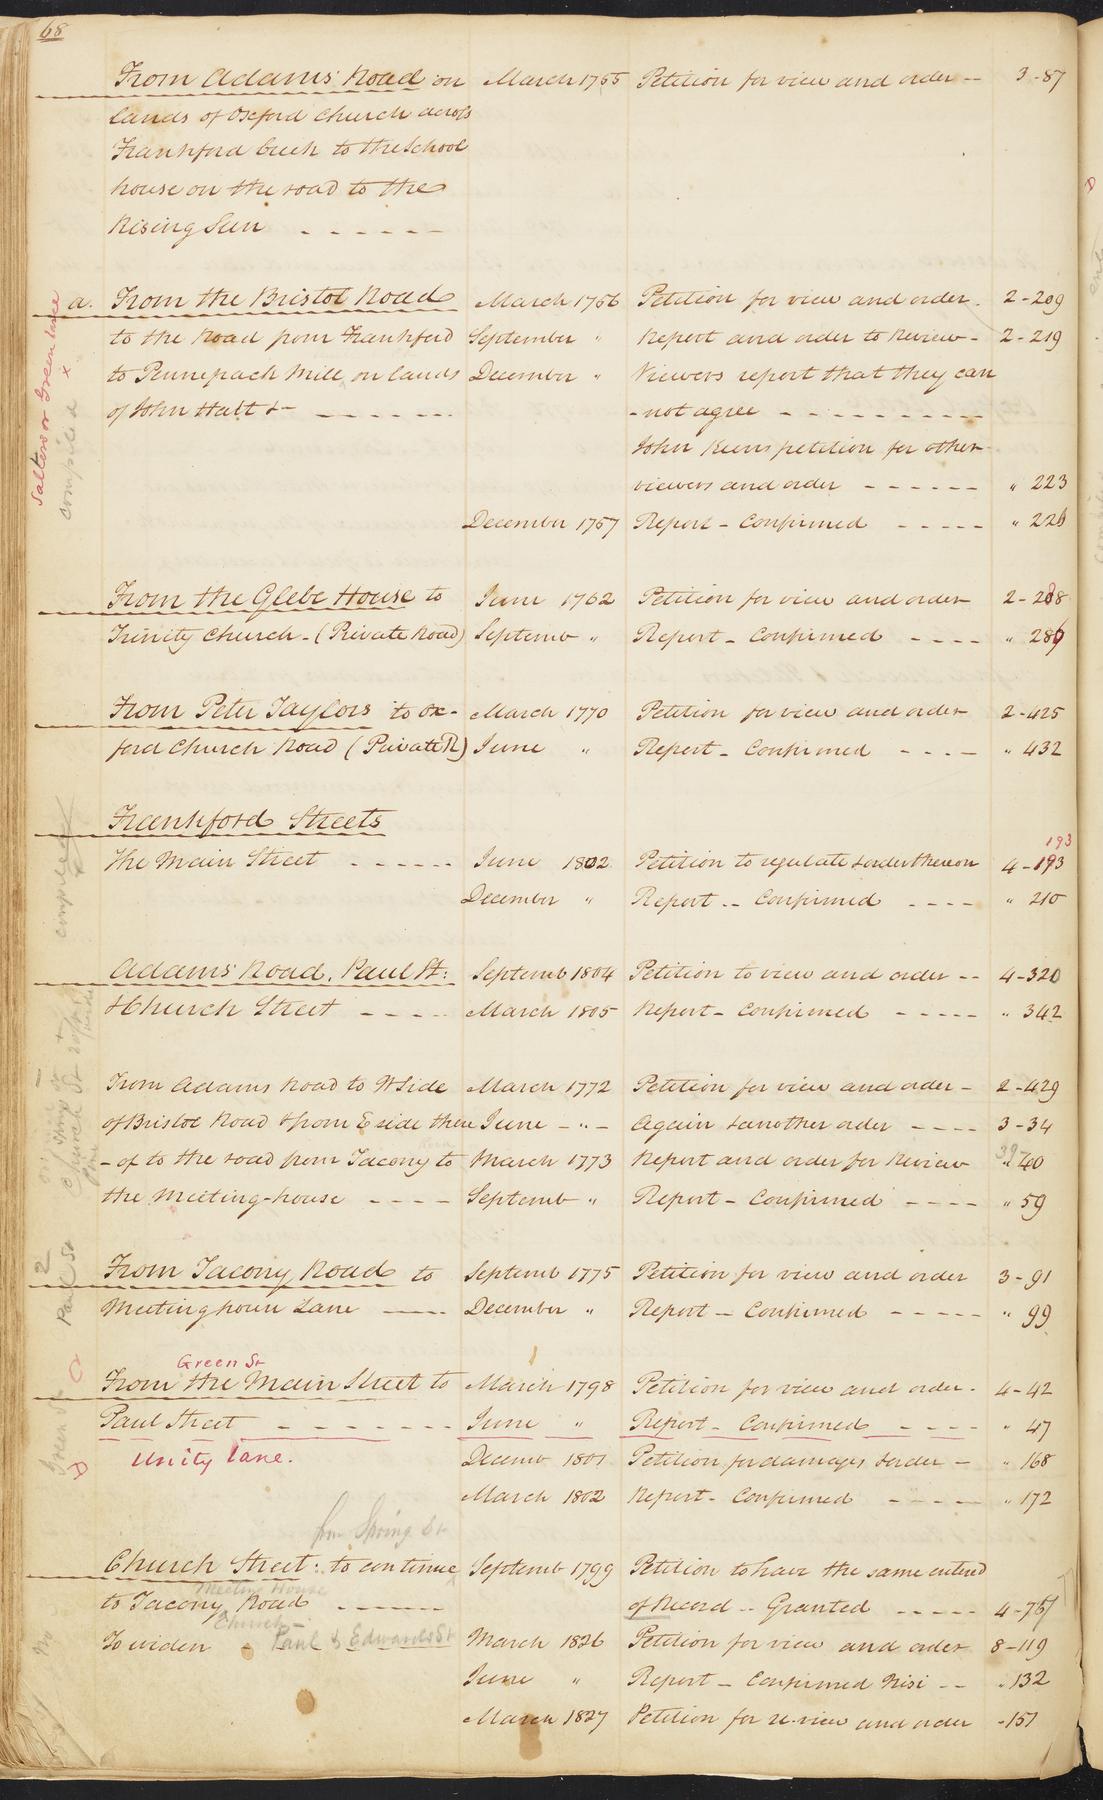 68
From Adams' Road on March 1755 Petition for view and order -- 3-87
lands of Oxford Church across
Frankford Creek to the School
house on the road to the
Rising Sun - - - - - -
a. From the Bristol Road March 1756 Petition for view and order. 2-209
to the Road from Frankford September " Report and order to Review - 2-219
to Pennepack Mill on lands December " Viewers report that they can
of John Hall &c - - - - - - - not agree - - - - - - - - - -
John Keens petition for other
viewers and order - - - - - - " 223
December 1757 Report - Confirmed - - - - - " 226
Salters or Green Lane
x
compiled
From the Glebe House to June 1762 Petition for view and order 2-288
Trinity Church - (Private Road) Septemb " Report - Confirmed - - - - " 289
From Peter Taylors to Ox- March 1770 Petition for view and order 2-425
ford Church Road (Private R) June " Report - Confirmed - - - - " 432
Frankford Streets
193
The Main Street - - - - - - June 1802 Petition to regulate & order thereon 4-193
December " Report -- Confirmed - - - - " 210
Adams' Road, Paul St: Septemb 1804 Petition to view and order -- 4-320
& Church Street - - - - March 1805 Report - Confirmed - - - - - " 342
From Adams Road to W Side March 1772 Petition for view and order - 2-429
of Bristol Road & from E side there June - " - Again & another order - - - - 3-34
- of to the road from Tacony to March 1773 Report and order for Review 39 " 40
the Meeting-house - - - - Septemb " Report - Confirmed - - - - " 59
Paul St
From Tacony Road to Septemb 1775 Petition for view and order 3-91
Meetinghouse Lane - - - December " Report - Confirmed - - - - - " 99
Green St
From the Main Street to March 1798 Petition for view and order - 4-42
Paul Street - - - - - - - - June " Report - Confirmed - - - - " 47
Unity Lane. Decemb 1801 Petition for damages & order - " 168
March 1802 Report - Confirmed - - - - - " 172
Green St
from Spring St
Church Street: to continue Septemb 1799 Petition to have the same entered
Meeting House
to Tacony Road - - - - of Record -- Granted - - - - - 4-75
Church -
To widen - Paul & Edwards St March 1826 Petition for view and order 8-119
June " Report - Confirmed Nisi -- " 132
March 1827 Petition for re-view and order - 151